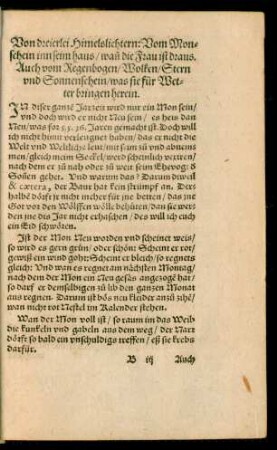 Von dreierlei Himelslichtern: Vom Mon-
schein inn seim haus / wañ die Frau ist draus.
Auch vom Regenbogen / Wolken / Stern
vnd Sonnenschein / was sie für Wet-
ter bringen herein.
IN diser gantz Jarzeit wird nur ein Mon sein /
vnd doch wird er nicht Neu sein / es heis dan
Neu / was for 35. 36. Jaren gemacht ist. Doch will
ich nicht hinin verleugnet haben / das er nicht die
Welt vnd Weltliche leut / mit seim zu vnd abneins
men / gleich meim Seckel / werd scheinlich vexiren /
nach dem er zu nah oder zu weit seim Ehevogt
Soñen gehet. Vnd warum das? Darum dieweil
& cætera, der Baur hat kein strümpf an. Deß
halbe dörfft jr nicht mehr für jne betten / das jne
Got vor den Wölffen wölle behüten: dan sie werd
den jne dis Jar nicht erhaschen / des will ich euch
ein Eid schwören.
Ist der Mon Neu worden vnd scheinet weis /
so wird es gern grün / oder schön: Scheint er rot /
gewiß ein wind goht: Scheint er bleich / so regnets
gleich: Vnd wan es regnet am nächsten Montag /
nach dem der Mon ein Neu gesäs angezogẽ hat /
so darf er demselbigen zu lib den gantzen Monat
aus regnen. Darum ist bös neu kleider anzu zihẽ /
wan nicht rot Nestel im Kalender stehen.
Wan der Mon voll ist / so raum im das Weib
die kunkeln vnd gabeln aus dem weg / der Narr
dörfft so bald ein vnschuldigs treffen / eß sie krebs
darfür.
B iij Auch